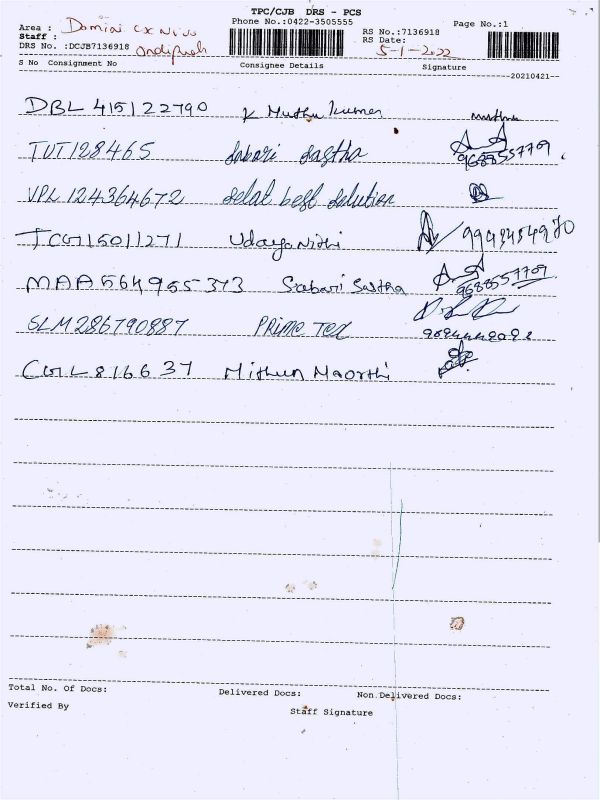 TPC/CJB DRS - PCS
Phone No.:0422-3505555 Page No.:1
Area : Domini
Staff :
RS No.:7136918
RS Date: 5-1-2022
DRS No. :DCJB7136918
S No Consignment No Consignee Details Signature
20210421
DBL 415122790 K Muthu Kumar muthu
TUT128465 Sabari Sastha 9688557709
VPL 124364672 Selat best Solution
TCG115011271 UdayaNithi
MAA564955373 Sabari Sastha 9688557709
SLM286790887 Prime Tex
CGL816637 Mithun Maorthi
Total No. Of Docs: Delivered Docs: Non Delivered Docs:
Verified By Staff Signature